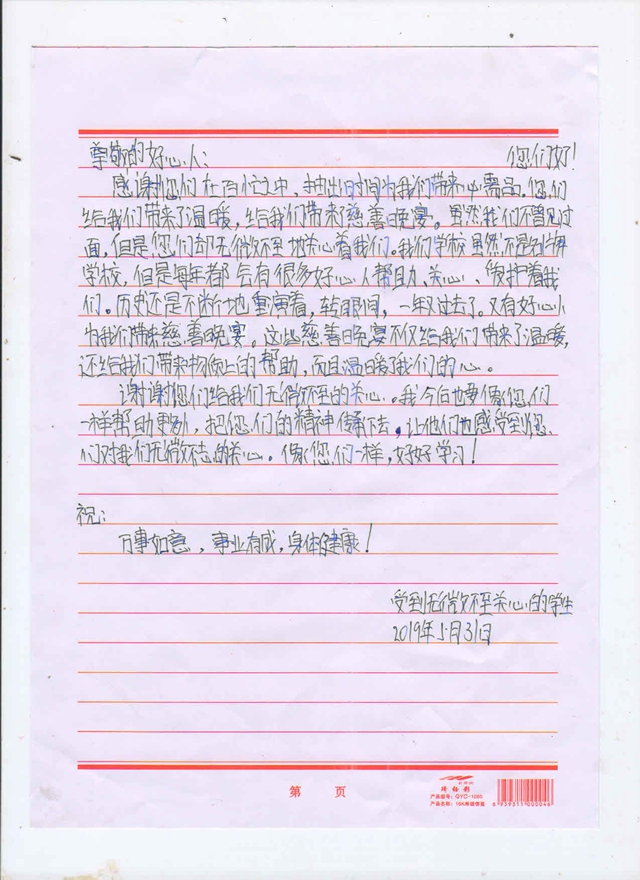 尊敬的好心人： 您们好！
感谢您们在百忙之中，抽出时间为我们带来必需品，您们
给我们带来了温暖，给我们带来了慈善晚宴。虽然我们不曾见过
面，但是您们却无微不至地关心着我们。我们学校虽然不是
学校，但是每年都会有很多好心人帮助、关心、保护着我
们。历史还是不断地重演着，转眼间，一年又过去了。又有好心人
为我们带来慈善晚宴。这些慈善晚宴不仅给我们带来了温暖，
还给我们带来物质上的帮助，而且温暖了我们的心。
谢谢您们给我们无微不至的关心。我今后也要像您们
一样帮助别人，把您们的精神传下去，让他们也感受到您
们对我们无微不至的关心。像您们一样，好好学习！
祝：
万事如意，事业有成，身体健康！
受到无微不至关心的学生
2019年5月31日
第 页
产品型号：QYC-1080
6939311000046